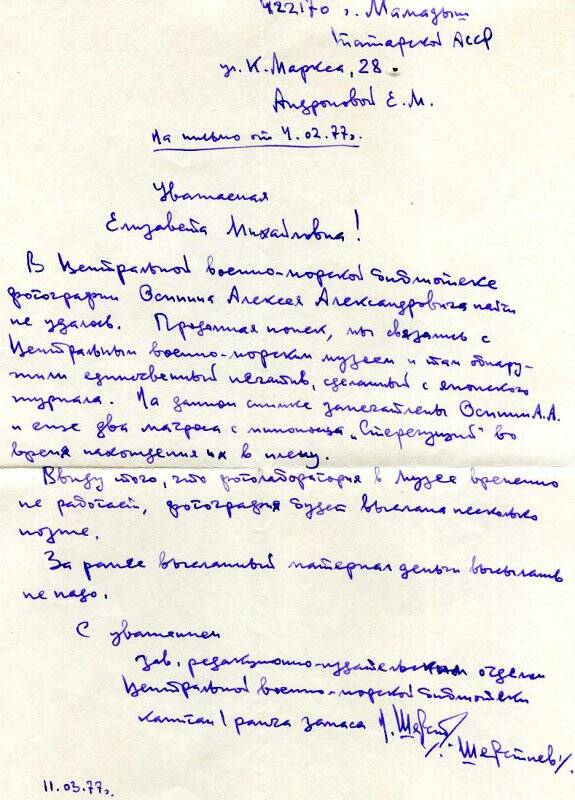 422170 г. Мамадыш
Татарской АССР
ул. К. Маркса, 28.
Андроновой Е.М.
На письмо от 4.02.77г.
Уважаемая
Елизавета Михайловна!
В Центральной военно-морской библиотеке
фотографии Осинина Алексея Александровича найти
не удалось. Продолжая поиск, мы связались с
Центральным военно-морским музеем и там обнару-
жили единственный негатив, сделанный с японского
журнала. На данном снимке запечатлены Осинин А.А.
и еще два матроса с миноносца „Стерегущий" во
время нахождения их в плену.
Ввиду того, что фотолаборатория в музее временно
не работает, фотография будет выслана несколько
позже.
За ранее высланный материал деньги высылать
не надо.
С уважением
зав. редакционно-издательским отделом
Центральной военно-морской библиотеки
капитан 1 ранга запаса
/Шерстнев/.
11.03.77г.